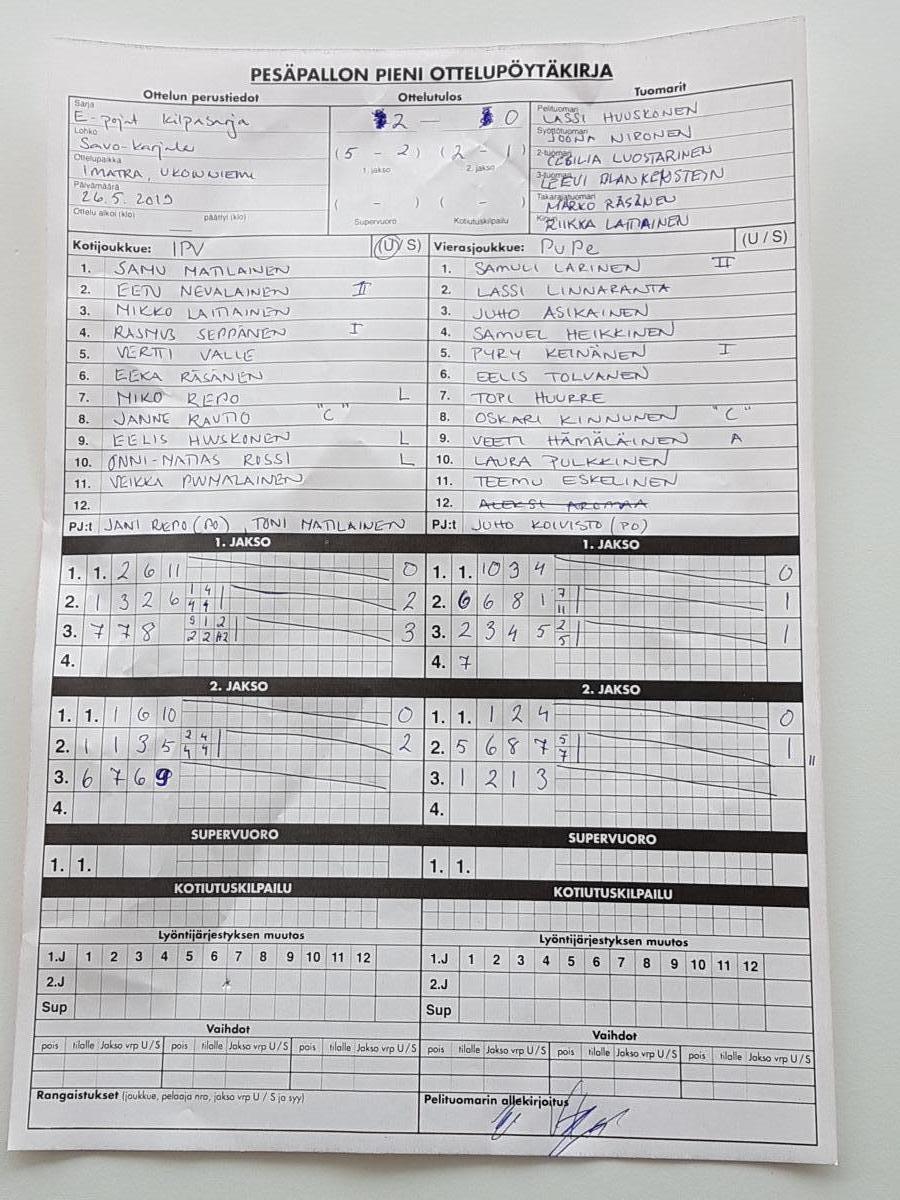 PESÄPALLON PIENI OTTELUPÖYTÄKIRJA
Ottelun perustiedot
Sarja
E-pojat kilpasarja
Lohko
Savo-Karjala
Ottelupaikka
IMATRA, UKONNIEMI
Päivämäärä
26.5.2019
Ottelu alkoi (klo) päättyi (klo)
Ottelutulos
2 — 0
(5 - 2) (2 - 1)
1. jakso 2. jakso
( - ) ( - )
Supervuoro Kotiutuskilpailu
Tuomarit
Pelituomari LASSI HUUSKONEN
Syöttötuomari JOONA NIRONEN
2-tuomari CECILIA LUOSTARINEN
3-tuomari LEEVI BLANKENSTEIN
Takarajatuomari MARKO RÄSÄNEN
Kirjuri RIIKKA LAITIAINEN
Kotijoukkue: IPV (U/S)
1. SAMU MATILAINEN
2. EETU NEVALAINEN II
3. MIKKO LAITIAINEN
4. RASMUS SEPPÄNEN I
5. VERTTI VALLE
6. EEKA RÄSÄNEN
7. MIKO REPO L
8. JANNE RAUTIO "C"
9. EELIS HUUSKONEN L
10. ONNI-MATIAS ROSSI L
11. VEIKKA PUUMALAINEN
12.
PJ:t JANI REPO (PO), TONI MATILAINEN
Vierasjoukkue: PuPe (U / S)
1. SAMULI LARINEN II
2. LASSI LINNARANTA
3. JUHO ASIKAINEN
4. SAMUEL HEIKKINEN
5. PYRY KEINÄNEN I
6. EELIS TOLVANEN
7. TOPI HUURRE
8. OSKARI KINNUNEN "C"
9. VEETI HÄMÄLÄINEN A
10. LAURA PULKKINEN
11. TEEMU ESKELINEN
12. ALEKSI AROMAA
PJ:t JUHO KOIVISTO (PO)
1. JAKSO
1. 1. 2 6 11 0
2. 1 3 2 6 1 4 2
4 4
3. 7 7 8 3
4.
1. JAKSO
1. 1. 10 3 4 0
2. 6 6 8 1 7 1
11
3. 2 3 4 5 2 1
5
4. 7
2. JAKSO
1. 1. 1 6 10 0
2. 1 1 3 5 2 4 2
4 4
3. 6 7 6 9
4.
2. JAKSO
1. 1. 1 2 4 0
2. 5 6 8 7 5 1
7
3. 1 2 1 3
4.
SUPERVUORO
1. 1.
SUPERVUORO
1. 1.
KOTIUTUSKILPAILU
KOTIUTUSKILPAILU
Lyöntijärjestyksen muutos
1.J 1 2 3 4 5 6 7 8 9 10 11 12
2.J
Sup
Lyöntijärjestyksen muutos
1.J 1 2 3 4 5 6 7 8 9 10 11 12
2.J
Sup
Vaihdot
pois tilalle Jakso vrp U / S pois tilalle Jakso vrp U / S pois tilalle Jakso vrp U / S
Vaihdot
pois tilalle Jakso vrp U / S pois tilalle Jakso vrp U / S pois tilalle Jakso vrp U / S
Rangaistukset (joukkue, pelaaja nro, jakso vrp U / S ja syy)
Pelituomarin allekirjoitus